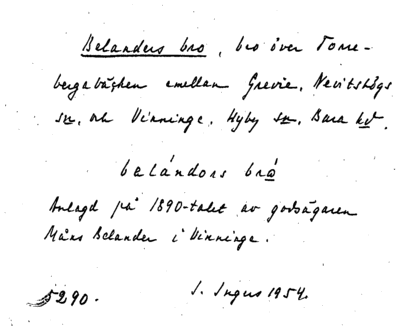 Belanders bro, bro över Torre-
bergabäcken emellan Grevie, Nevitshögs
sn, och Vinninge, Hyby sn, Bara hd.
belándors brǫ
Anlagd på 1890-talet av godsägaren
Måns Belander i Vinninge.
5290. S. Ingers 1954.